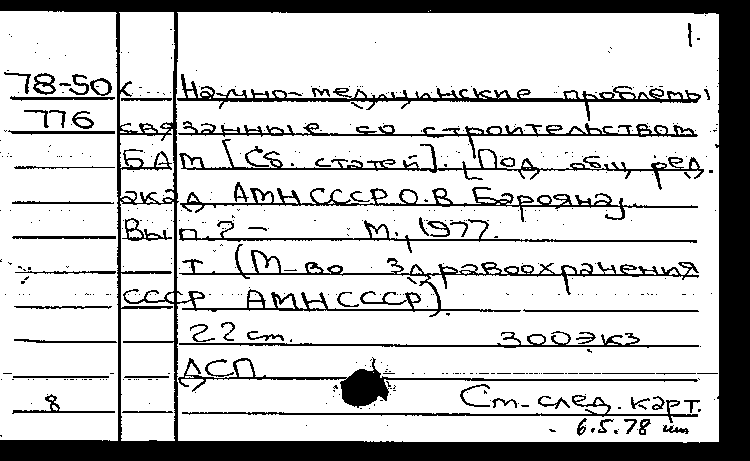 1.
78-50к Научно-медицинские проблемы
776 связанные со строительством
БАМ [Сб. статей]. [Под общ. ред.
акад. АМН СССР О.В. Барояна].
Вып. 2 - М., 1977.
т. (М-во здравоохранения
СССР. АМН СССР).
22 см. 300 экз.
ДСП.
8 См. след. карт.
6.5.78